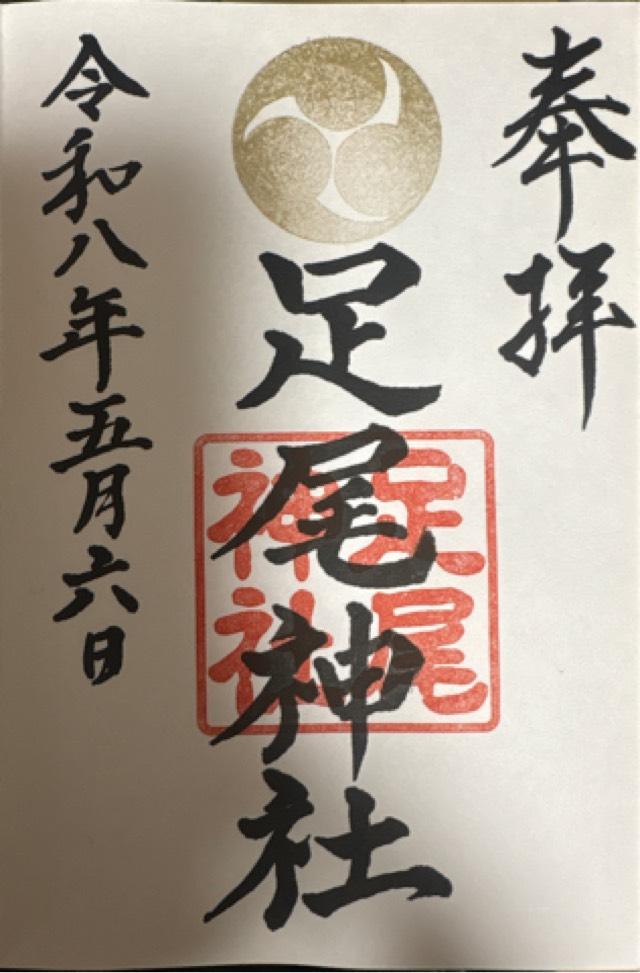 奉拝
足尾神社
足尾
神社
令和八年五月六日